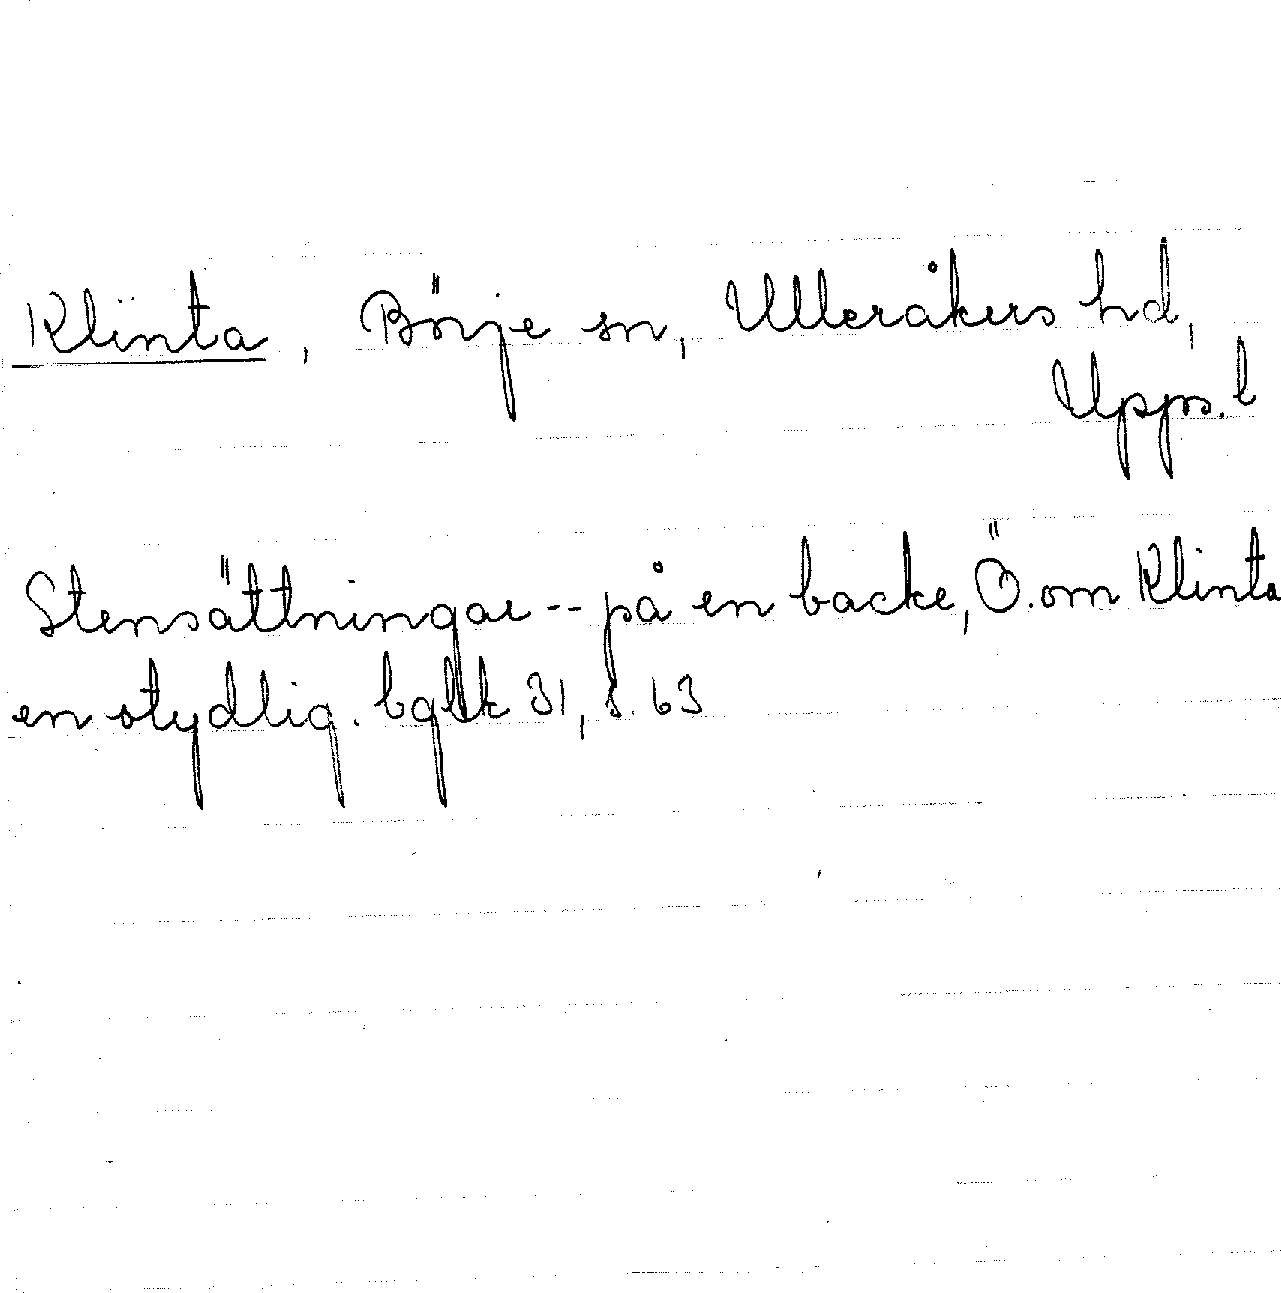 Klinta, Börje sn, Ulleråkers hd,
Upps. l
Stensättningar -- på en backe, Ö. om Klinta
en otydlig. bglk 31, s. 63